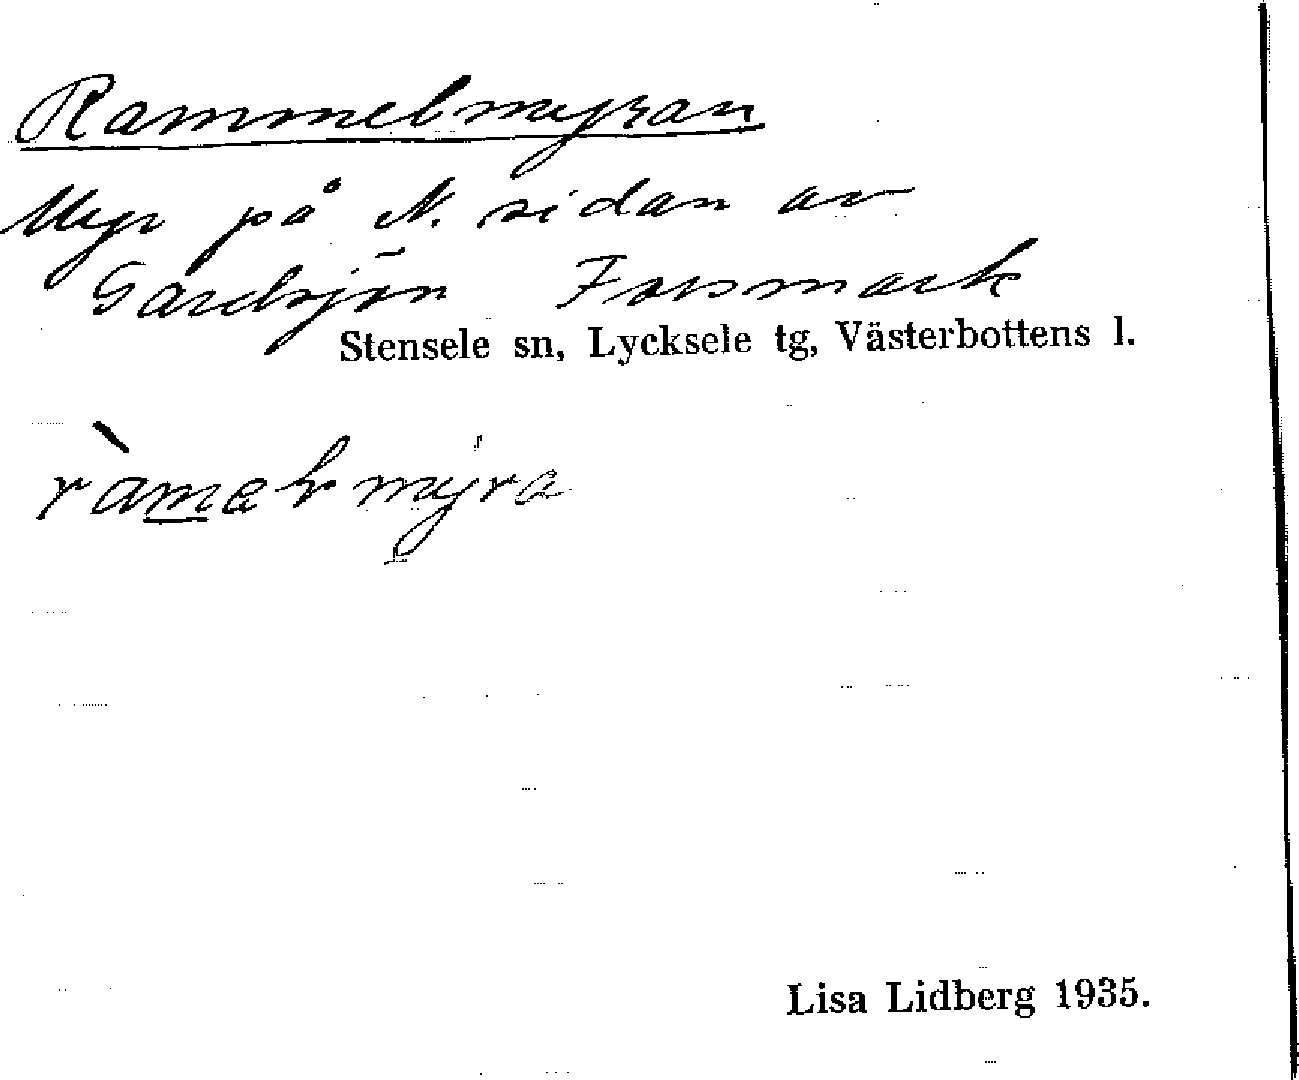 Rammelmyran
Myr på N. sidan av
Gardsjön Forsmark
Stensele sn, Lycksele tg, Västerbottens l.
ràmelmyra
Lisa Lidberg 1935.